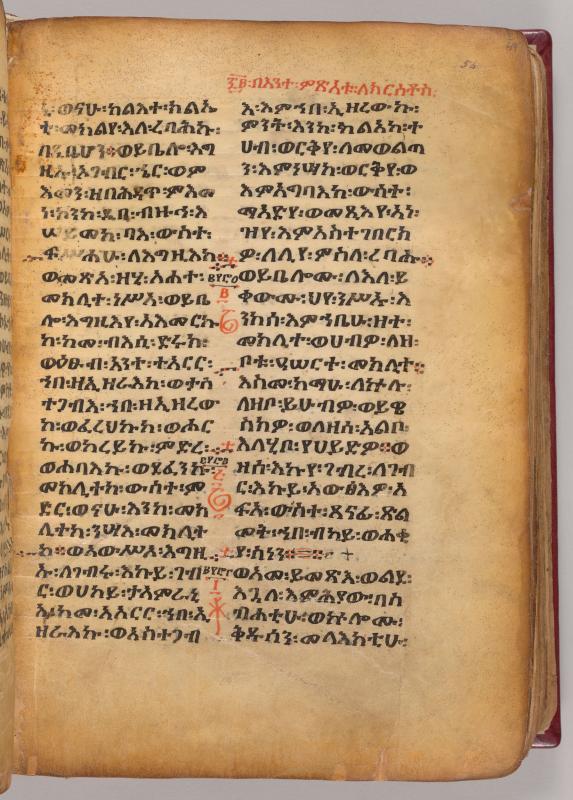 ፲፪፡በእንተ፡ምጽአቱ፡ለክርስቶስ፡
ኒ፡ወናሁ፡ክልእተ፡ክልኤ
ተ፡መክልየ፡እለ፡ረባሕኩ፡
ቦንቤሆን፡፡ወይቤሎ፡እግ
ዚኡ፡ኦገብር፡ኄር፡ወም
እመን፡ዘበሕዳጥ፡ምእመ
ነ፡ኮንከ፡ዲበ፡ብዙኅ፡እ
ሠይመከ፡ባእ፡ውስተ፡
ፍሥሐሁ፡ለእግዚእከ፡፡
ወመጽአ፡ዘሂ፡አሐተ፡
መክሊተ፡ነሥአ፡ወይቤ
ሎ፡እግዚእየ፡አአምረከ
ከ፡ከመ፡ብእሲ፡ድሩክ፡
ወዕፁብ፡አንተ፡ተአርር፡
ኀበ፡ዘኢዘራእከ፡ወታስ
ተጋብእ፡ኀበ፡ዘኢዘረው
ከ፡ወፈረህኩከ፡ወሖር
ኩ፡ወከረይኩ፡ምድረ፡
ወሐባእኩ፡ወደፈንኩ፡
መክሊተከ፡ውስተ፡ም
ድር፡ወናሁ፡እንከ፡መክ
ሊተከ፡ንሣእ፡መክሊት
ከ፡፡ወአውሥአ፡እግዚ
ኡ፡ለገብሩ፡እኩይ፡ገብ
ር፡ወሀካይ፡ታአምረኒ
እከመ፡አአርር፡ኀበ፡ኢ
ዘራእኩ፡ወአስተጋብ
እ፡እምኀበ፡ኢዘረውኩ፡
ምንት፡እንከ፡ከልአከ፡ተ
ሀብ፡ወርቅየ፡ለመወልጣ
ን፡እምንሣከ፡ወርቅየ፡ወ
እምአግባእከ፡ውስተ፡
ማእድየ፡ወመጺእየ፡አነ፡
ዝየ፡እምአስተገበርክ
ዎ፡ለሊየ፡ምስለ፡ረባሑ፡፡
ወይቤሎሙ፡ለእለ፡ይ
ቀውሙ፡ህየ፡ንሥኡ፡እ
ንከሰ፡እምኀቤሁ፡ዘተ፡
መክሊተ፡ወሀብዎ፡ለዘ፡
ቦቱ፡ዓሠርተ፡መክሊት፡
እስመ፡ከማሁ፡ለኵሉ፡
ለዘቦ፡ይሁብዎ፡ወይዌ
ስክዎ፡ወለዘሰ፡አልቦ፡
እለሂቦ፡የሀይድዎ፡፡ወ
ዘሰ፡እኩየ፡ገብረ፡ለገብ
ር፡እኩይ፡አውፅእዎ፡አ
ፍአ፡ውስተ፡ጸናፊ፡ጽል
መት፡ኀበ፡ብካይ፡ወሐቂ
የ፡ስነን፡፡
ወአመ፡ይመጽእ፡ወልደ፡
እጓለ፡እምሕያው፡በስ
ብሐቲሁ፡ወኵሎሙ፡
ቅዱሳን፡መላእክቲሁ፡